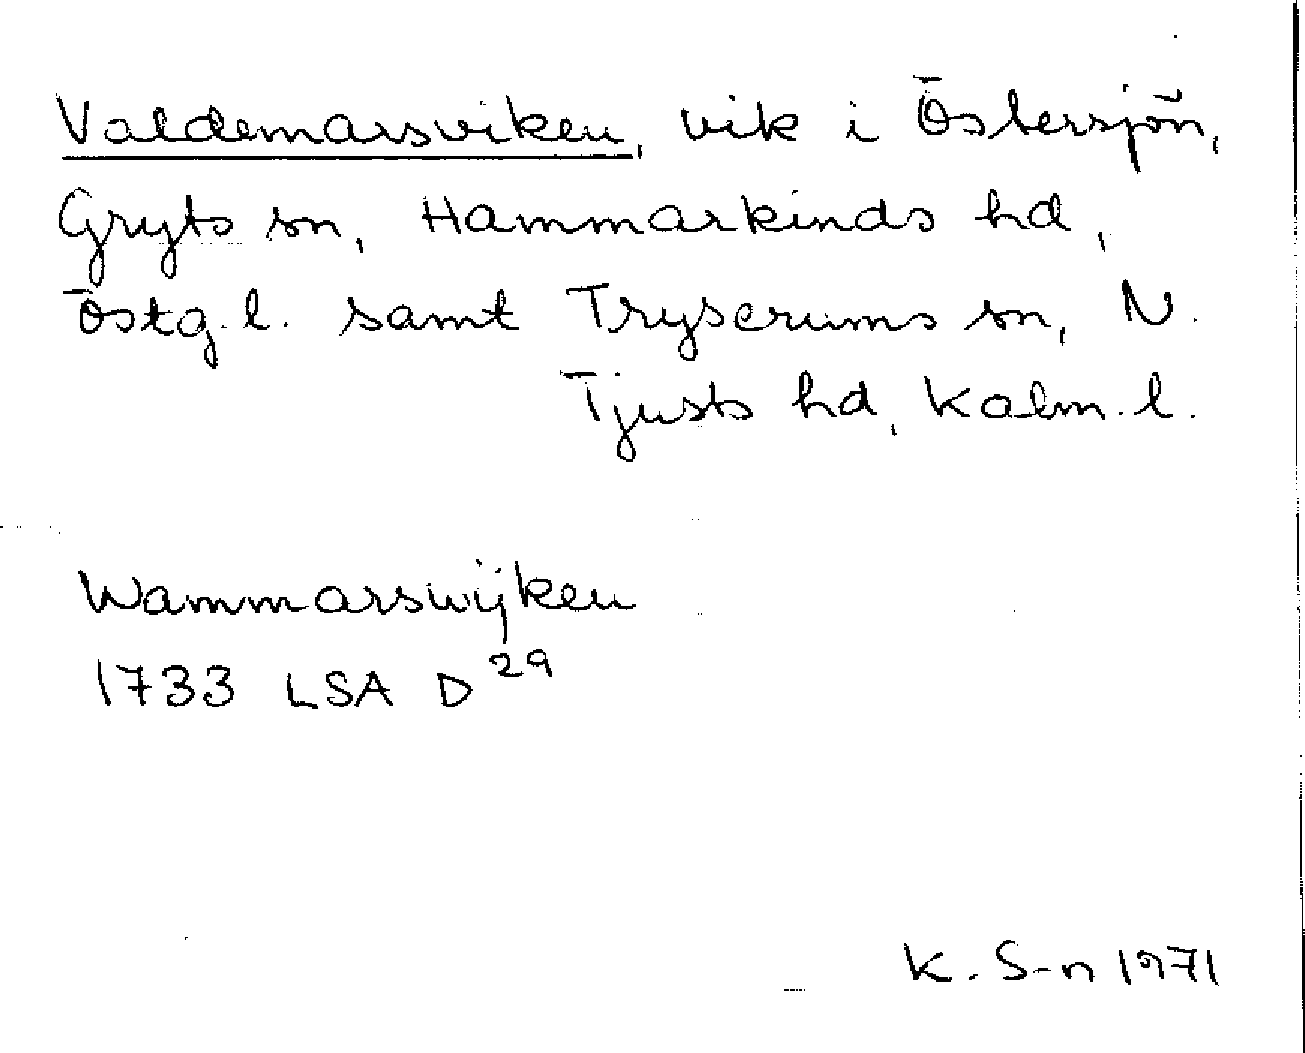 Valdemarsviken, vik i Östersjön,
Gryts sn, Hammarkinds hd,
Östg.l. samt Tryserums sn, N.
Tjusts hd, Kalm.l.
Wammarswijken
1733 LSA D29
K. S-n 1971